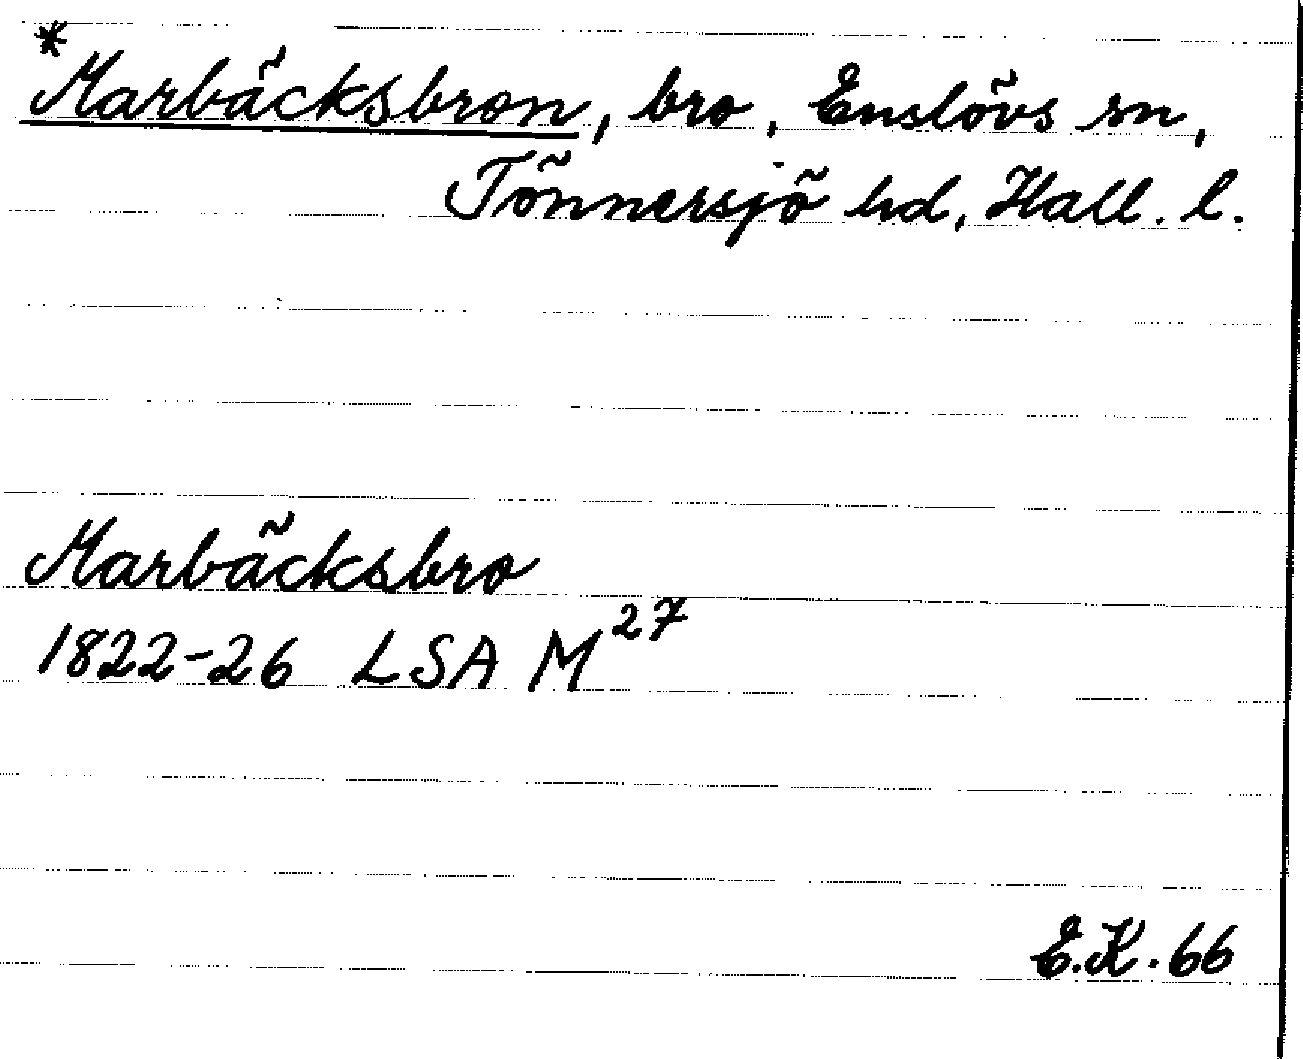 *Marbäcksbron, bro, Enslövs sn,
Tönnersjö hd, Hall. l.
Marbäcksbro
1822-26 LSA M27
E.K. 66